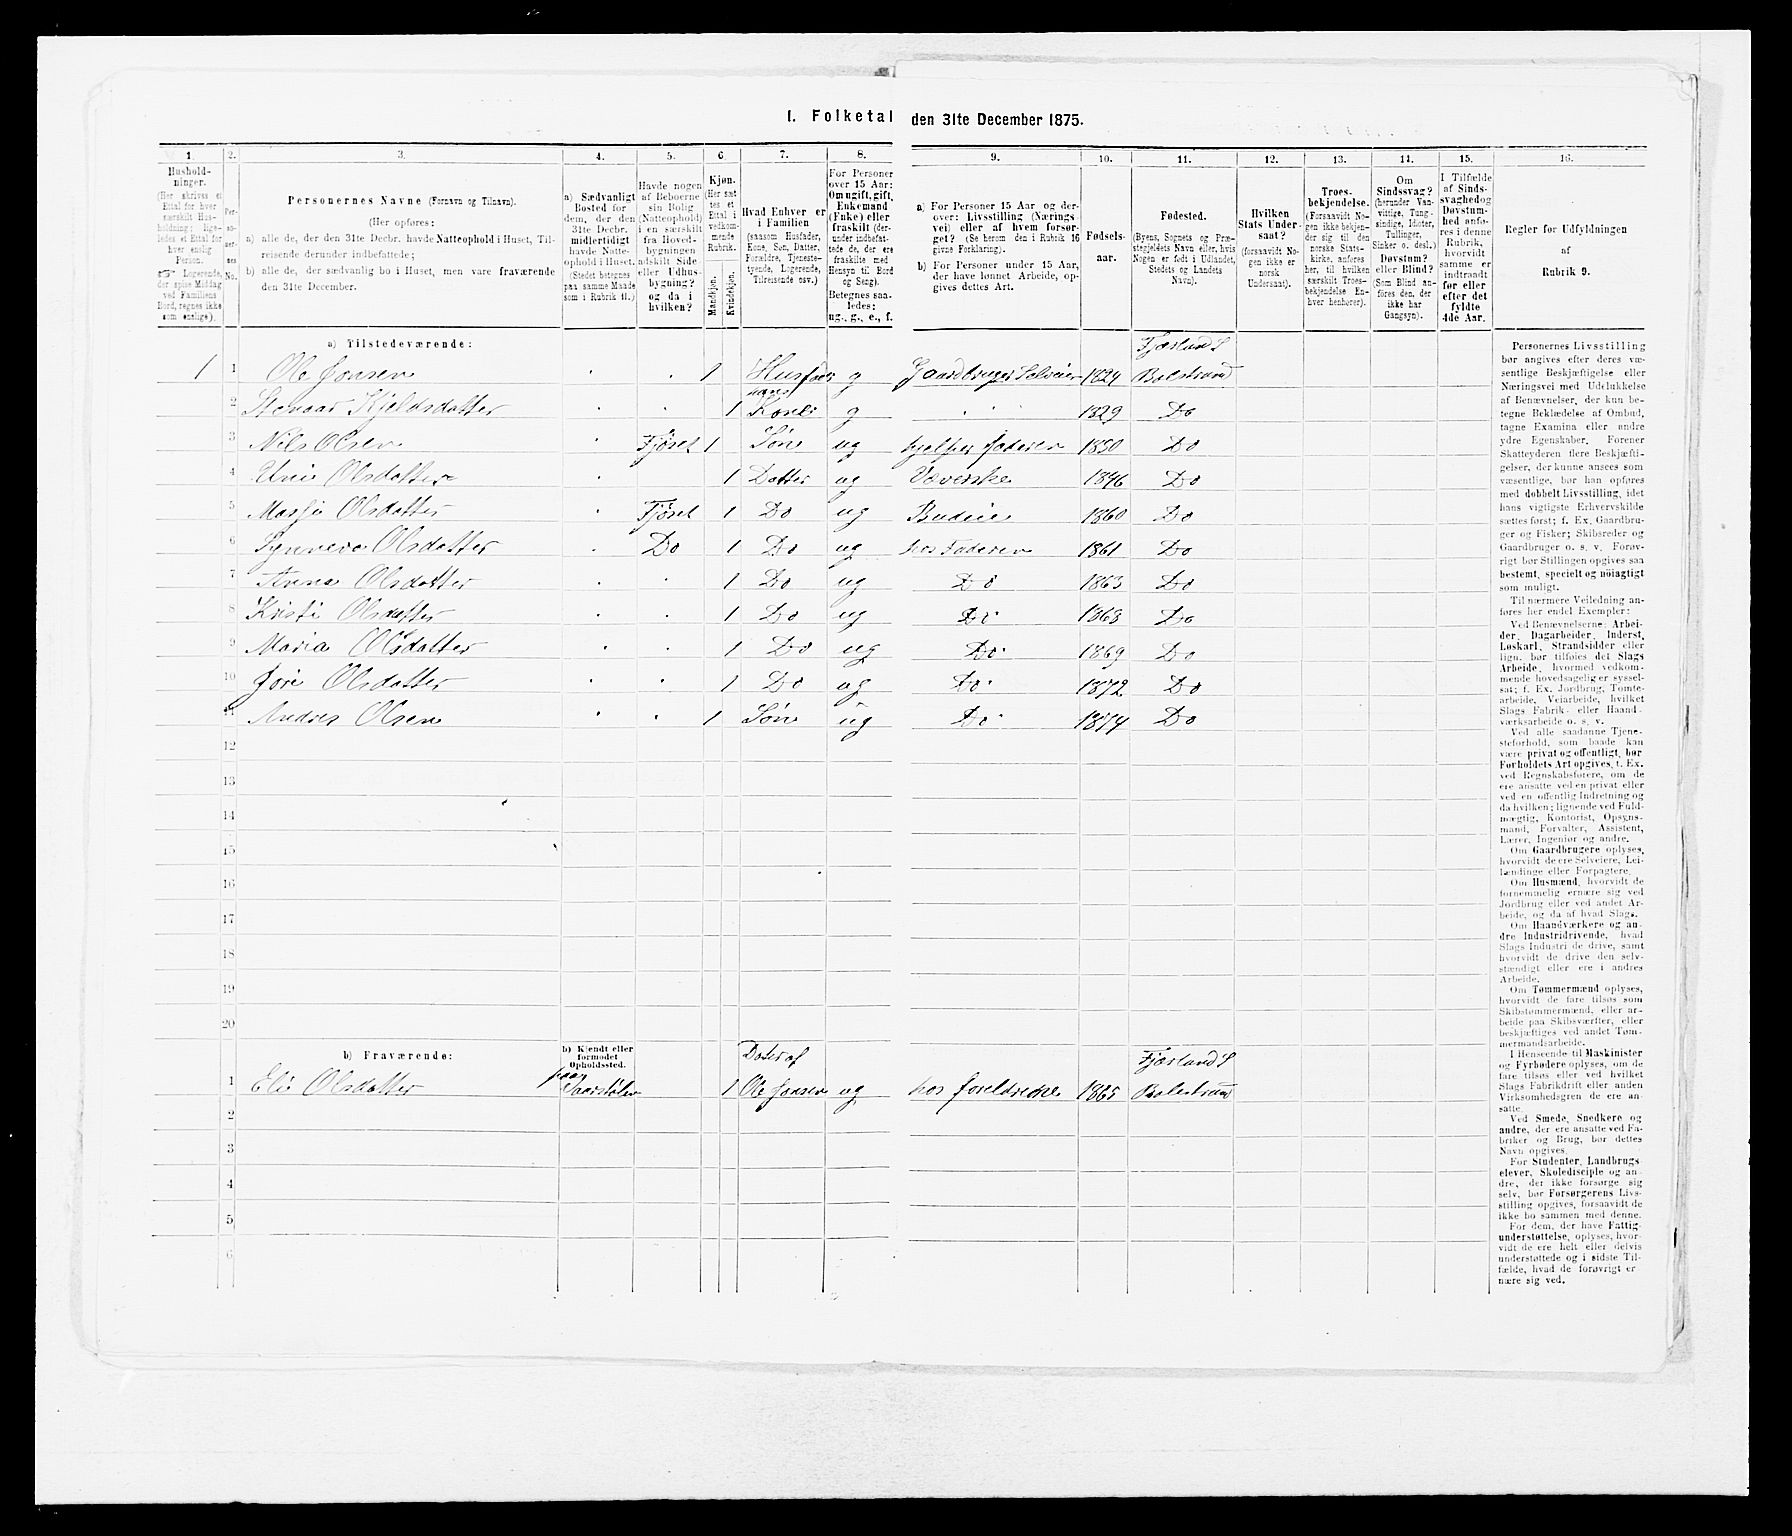 I. Folketal den 31te December 1875.
1. 2. 3. 4. 5. 6. 7. 8. 9. 10. 11. 12. 13. 14. 15. 16.
Hushold-
ninger.
(Her skrives et
Ettal for hver
særskilt Hus-
holdning; lige-
ledes et Ettal for
hver enslig
Person.
☞ Logerende,
der spise Middag
ved Familiens
Bord, regnes ikke
som enslige).
Per-
so-
ner-
nes
No.
Personernes Navne (Fornavn og Tilnavn).
(Her opføres:
a) alle de, der den 31te Decbr. havde Natteophold i Huset, Til-
reisende derunder indbefattede;
b) alle de, der sædvanlig bo i Huset, men vare fraværende
den 31te December.
a) Sædvanligt
Bosted for
dem, der den
31te Decbr.
midlertidigt
havde Natte-
ophold i Huset.
(Stedet betegnes
paa samme Maade
som i Rubrik 11.)
Havde nogen
af Beboerne
sin Bolig
(Natteophold)
i en særskilt
fra Hoved-
bygningen
adskilt Side
eller Udhus-
bygning?
og da i
hvilken?
Kjøn.
(Her sæt
tes et
Ettal i
vedkom-
mende
Rubrik.
Mandkjøn.
Kvindekjøn.
Hvad Enhver er
i Familien
(saasom Husfader,
Kone, Søn, Datter,
Forældre, Tjeneste-
tyende, Logerende,
Tilreisende osv.)
For Personer
over 15 Aar:
Om ugift, gift,
Enkemand
(Enke) eller
fraskilt (der-
under indbefat-
tede de, der ere
fraskilte med
Hensyn til Bord
og Seng).
Betegnes saa-
ledes:
ug., g., e., f.
a) For Personer 15 Aar og der-
over: Livsstilling (Nærings-
vei) eller af hvem forsør-
get? (Se herom den i Rubrik 16
givne Forklaring).
b) For Personer under 15 Aar,
der have lønnet Arbeide, op-
gives dettes Art.
Fødsels-
aar.
Fødested.
(Byens, Sognets og Præ-
stegjeldets Navn eller, hvis
Nogen er født i Udlandet,
Stedets og Landets
Navn).
Hvilken
Stats Under-
saat?
(forsaavidt No-
gen ikke er
norsk
Undersaat).
Troes-
bekjendelse.
(Forsaavidt No-
gen ikke bekjen-
der sig til den
norske Stats-
kirke, anføres
her, til hvilken
særskilt Troes-
bekjendelse En-
hver henhører).
Om
Sindssvag?
(herunder Van-
vittige, Tung-
sindige, Idioter,
Tullinger,
Sinker o. desl.)
Døvstum?
eller Blind?
(Som Blind an-
føres den, der
ikke har
Gangsyn).
I Tilfælde
af Sinds-
svaghed og
Døvstum-
hed anfø-
res i denne
Rubrik,
hvorvidt
samme er
indtraadt
før eller
efter det
fyldte
4de Aar.
Regler for Udfyldningen
af
Rubrik 9.
a) Tilstedeværende:
Fjærland S
1 1 Ole Jonsen 1 Husfader g Gaardbruger Selveier 1824 Balestrand
2 Kjeldsdatter 1 hans Kone g 1829 Do
3 Nils Olsen Fjøset 1 Søn ug hjelper faderen 1850 Do
4 Olsdatter 1 Datter ug Væverske 1846 Do
5 Olsdatter Fjøset 1 Do ug Budeie 1860 Do
6 Synneva Olsdatter Do 1 Do ug hos Faderen 1861 Do
7 Anna Olsdatter 1 Do ug Do 1863 Do
8 Kristi Olsdatter 1 Do ug Do 1868 Do
9 Maria Olsdatter 1 Do ug Do 1869 Do
10 Olsdatter 1 Do ug Do 1872 Do
11 Andres Olsen 1 Søn ug Do 1874 Do
12
13
14
15
16
17
18
19
20
b) Fraværende:
b) Kjendt eller
formodet
Opholdssted.
Dater af
Fjærland S
paa
1 Eli Olsdatter 1 Ole Jonsen ug hos foreldrene 1865 Balestrand
2
3
4
5
6
Personernes Livsstilling
bør angives efter deres væ-
sentlige Beskjæftigelse eller
Næringsvei med Udelukkelse
af Benævnelser, der kun be-
tegne Beklædelse af Ombud,
tagne Examina eller andre
ydre Egenskaber. Forener
Skatteyderen flere Beskjæfti-
gelser, der kunne ansees som
væsentlige, bør han opføres
med dobbelt Livsstilling, idet
hans vigtigste Erhvervskilde
sættes først; f. Ex. Gaardbru-
ger og Fisker; Skibsreder og
Gaardbruger o. s. v. Forøv-
rigt bør Stillingen opgives saa
bestemt, specielt og nöiagtigt
som muligt.
Til nærmere Veiledning an-
føres her endel Exempler:
Ved Benævnelserne: Arbei-
der, Dagarbeider, Inderst,
Løskarl, Strandsidder eller
lign. bør tilføies det Slags
Arbeide, hvormed vedkom-
mende hovedsagelig er syssel-
sat; f. Ex. Jordbrug, Tomte-
arbeide, Veiarbeide, hvilket
Slags Fabrik- eller Haand-
værksarbeide o. s. v.
Ved alle saadanne Tjene-
steforhold, som baade kan
være privat og offentligt, bør
Forholdets Art opgives, t. Ex.
ved Regnskabsførere, om de
ere ansatte ved en privat eller
ved en offentlig Indretning og
da hvilken; lignende ved Fuld-
mægtig, Kontorist, Opsyns-
mand, Forvalter, Assistent,
Lærer, Ingeniør og andre.
Om Gaardbrugere oplyses,
hvorvidt de ere Selveiere, Lei-
lændinge eller Forpagtere.
Om Husmænd, hvorvidt de
fornemmelig ernære sig ved
Jordbrug eller ved andet Ar-
beide, og da af hvad Slags.
Om Haandværkere og an-
dre Industridrivende, hvad
Slags Industri de drive, samt
hvorvidt de drive den selv-
stændigt eller ere i andres
Arbeide.
Om Tømmermænd oplyses,
hvorvidt de fare tilsøs som
Skibstømmermænd, eller ar-
beide paa Skibsværfter, eller
beskjæftiges ved andet Tøm-
mermandsarbeide.
I Henseende til Maskinister
og Fyrbødere oplyses, om de
fare tilsøs eller ved hvilket
Slags Fabrikdrift eller anden
Virksomhedsgren de ere an-
satte.
Ved Smede, Snedkere og
andre, der ere ansatte ved Fa-
briker og Brug, bør dettes
Navn opgives.
For Studenter, Landbrugs-
elever, Skoledisciple og an-
dre, der ikke forsørge sig
selv, bør Forsørgerens Livs-
stilling opgives, forsaavidt de
ikke bo sammen med denne.
For dem, der have Fattig-
understøttelse, oplyses, hvor-
vidt de ere helt eller delvis
understøttede og i sidste Til-
fælde, hvad de forøvrigt er-
nære sig ved.